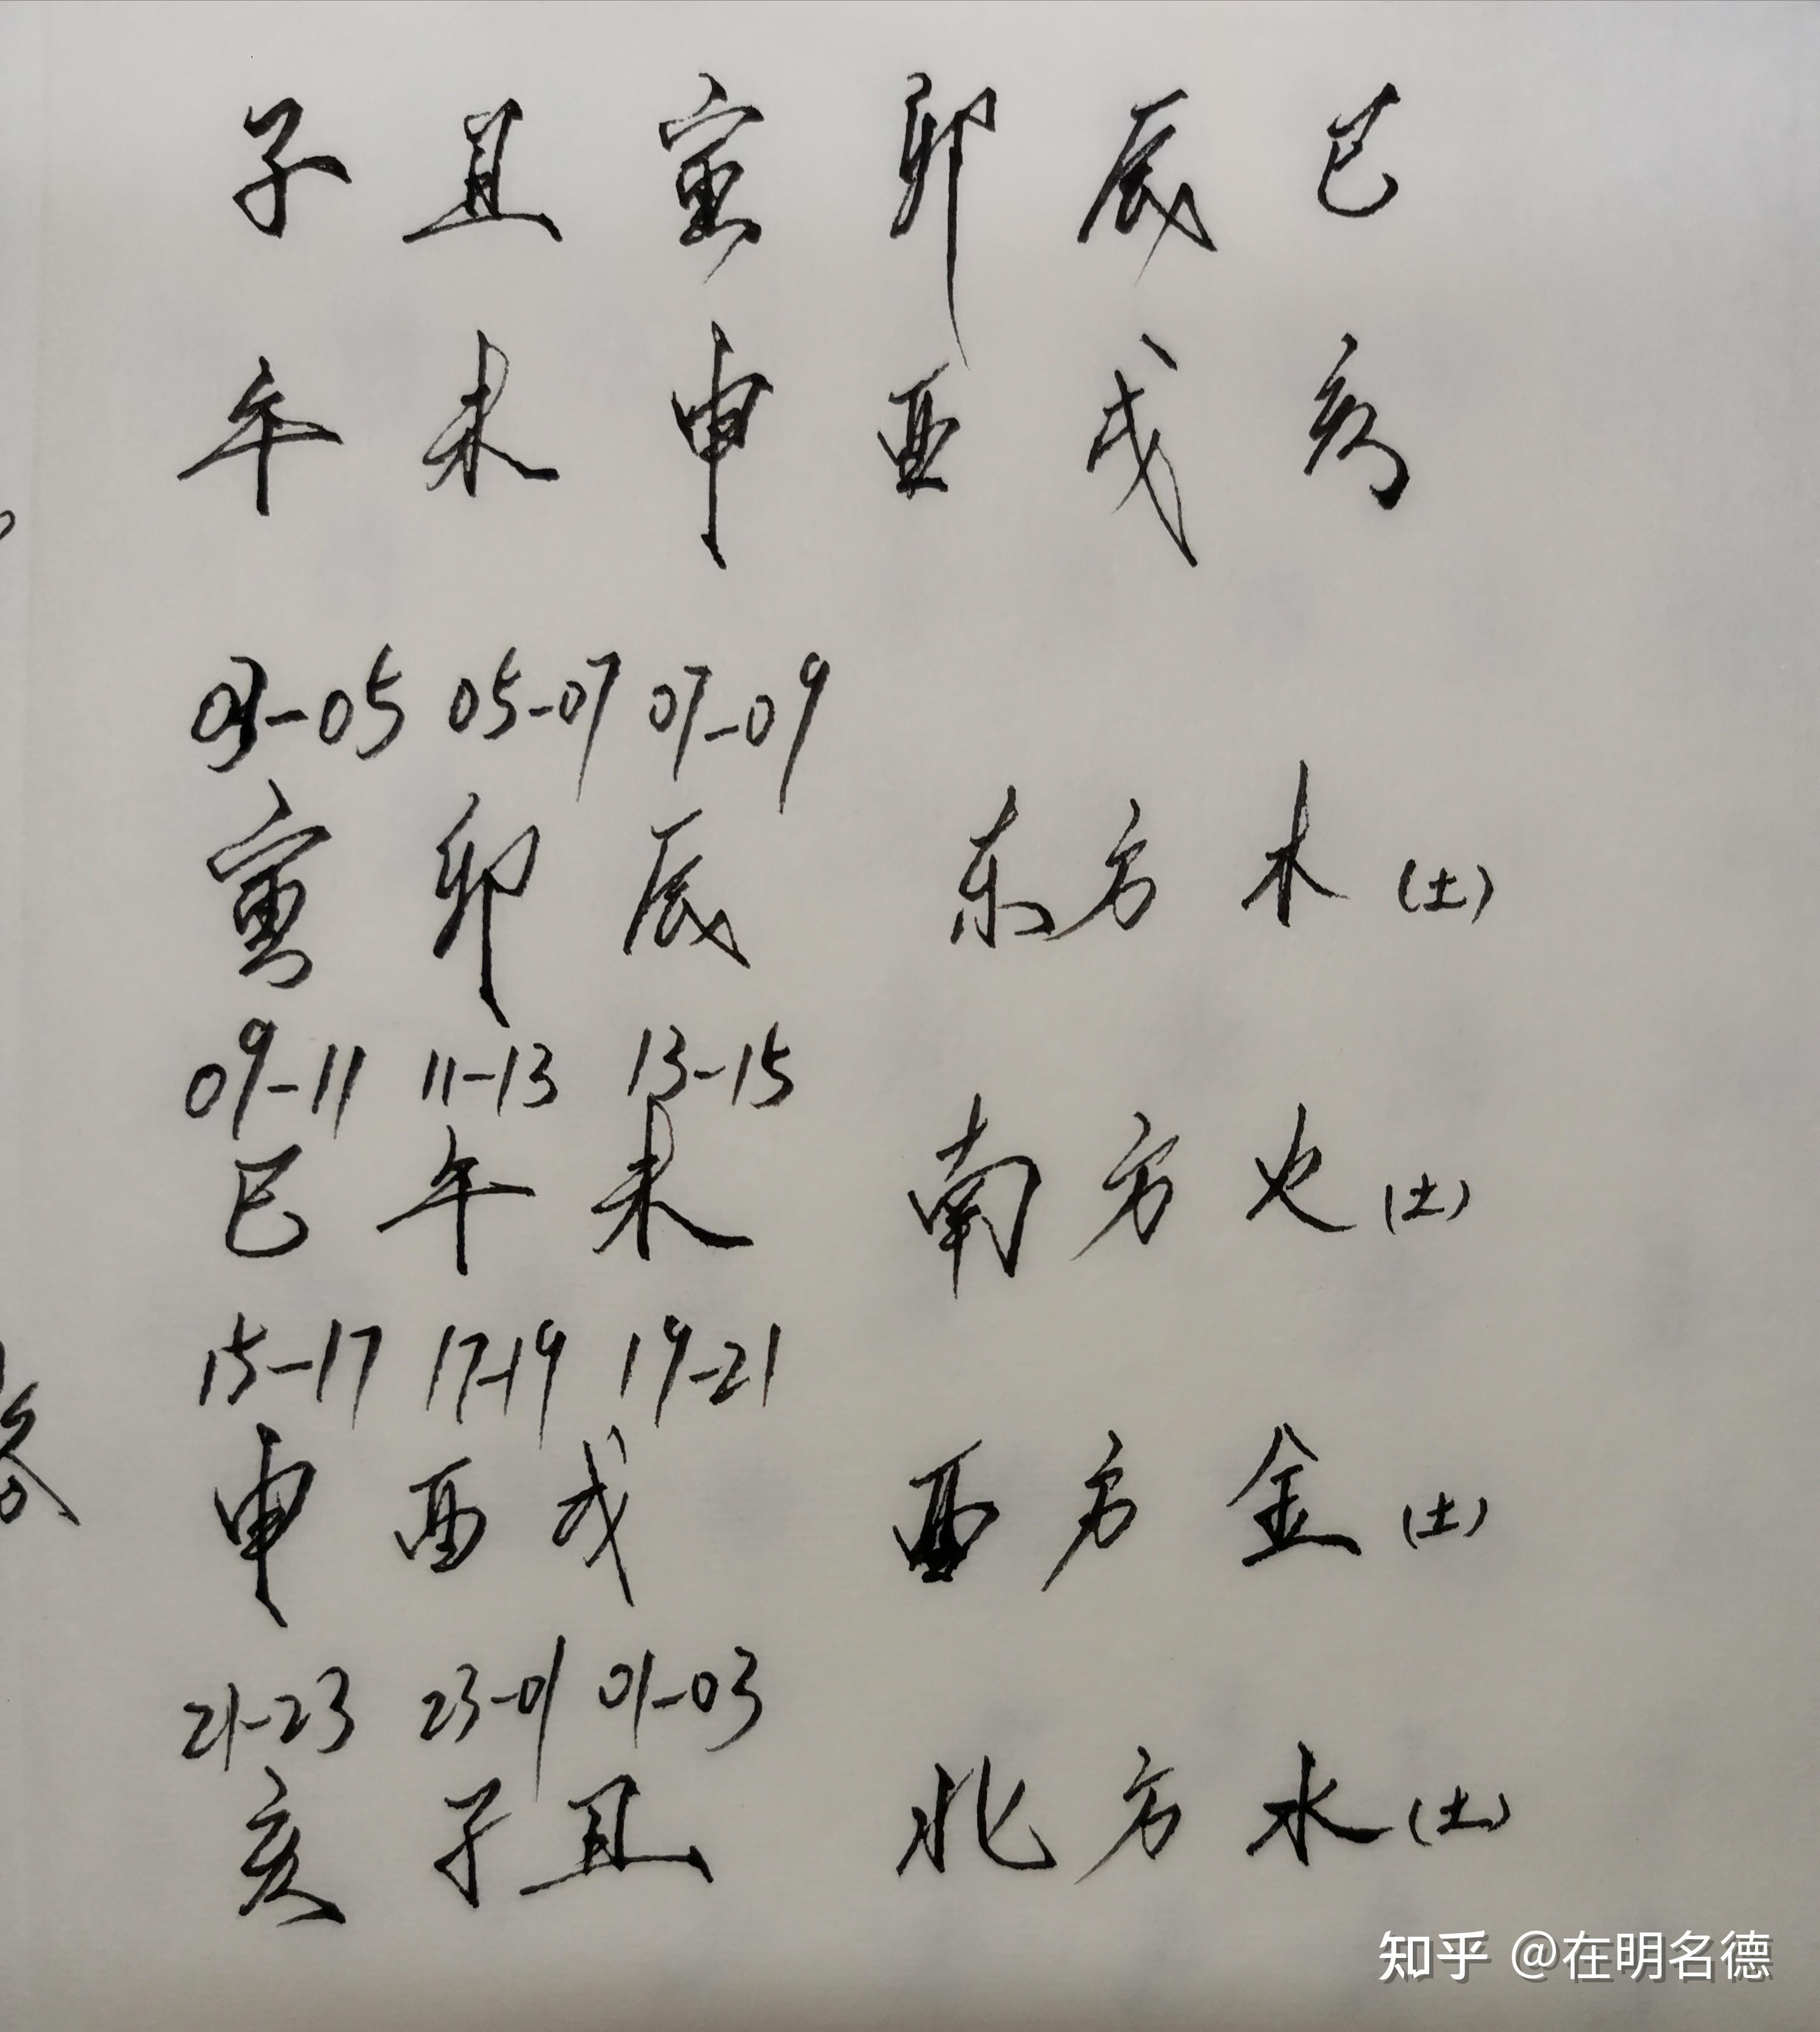 子 丑 寅 卯 辰 巳
午 未 申 酉 戌 亥
03-05 05-07 07-09
寅 卯 辰 东方 木 (土)
09-11 11-13 13-15
巳 午 未 南方 火 (土)
15-17 17-19 19-21
申 酉 戌 西方 金 (土)
21-23 23-01 01-03
亥 子 丑 北方 水 (土)
知乎 @在明名德